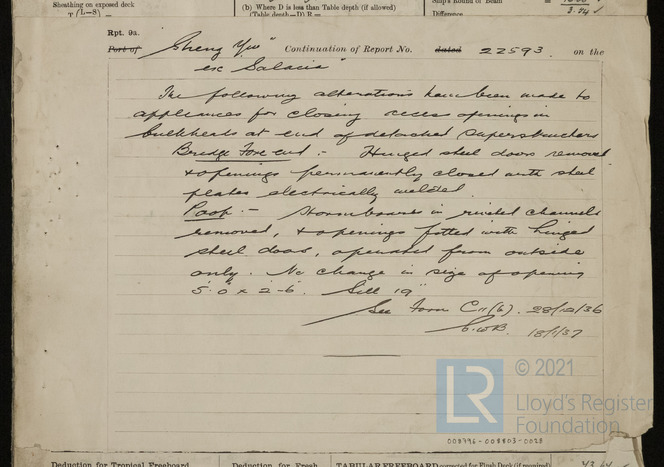 Sheathing on exposed deck
T (L−S) =
(b) Where D is less than Table depth (if allowed)
(Table depth−D) R =
Ship's Round of Beam
Difference
Rpt. 9a.
Port of "Sheng Yu" Continuation of Report No. dated 22593. on the
ex "Salacia"
The following alterations have been made to
appliances for closing access openings in
bulkheads at end of detached superstructures
Bridge Fore end :- Hinged steel doors removed
& openings permanently closed with steel
plates electrically welded.
Poop :- Stormboards in riveted channels
removed, & openings fitted with hinged
steel doors, operated from outside
only. No change in size of opening
5'.0" x 2'-6". Sill 19"
See Form C11(b). 28/10/36
C.W.B. 18/1/37
LR © 2021
Lloyd's Register
Foundation
008796-008803-0028
Deduction for Tropical Freeboard
Deduction for Fresh
TABULAR FREEBOARD corrected for Flush Deck (if required)